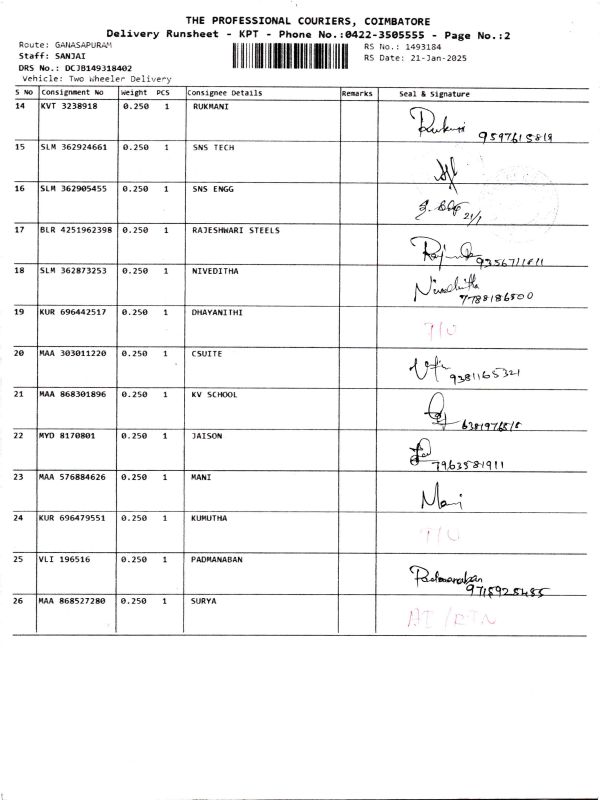 THE PROFESSIONAL COURIERS, COIMBATORE
Delivery Runsheet - KPT - Phone No.:0422-3505555 - Page No.:2
Route: GANASAPURAM
RS No.: 1493184
Staff: SANJAI
RS Date: 21-Jan-2025
DRS No.: DCJB149318402
Vehicle: Two Wheeler Delivery
S No Consignment No Weight PCS Consignee Details Remarks Seal & Signature
14 KVT 3238918 0.250 1 RUKMANI
9597615818
15 SLM 362924661 0.250 1 SNS TECH
16 SLM 362905455 0.250 1 SNS ENGG
21/1
17 BLR 4251962398 0.250 1 RAJESHWARI STEELS
18 SLM 362873253 0.250 1 NIVEDITHA
Nivedhitha
7788186500
19 KUR 696442517 0.250 1 DHAYANITHI
T/O
20 MAA 303011220 0.250 1 CSUITE
9381165321
21 MAA 868301896 0.250 1 KV SCHOOL
22 MYD 8170801 0.250 1 JAISON
7963581911
23 MAA 576884626 0.250 1 MANI
Mani
24 KUR 696479551 0.250 1 KUMUTHA
T/O
25 VLI 196516 0.250 1 PADMANABAN
Padmanaban
9715925485
26 MAA 868527280 0.250 1 SURYA
AT/RTN